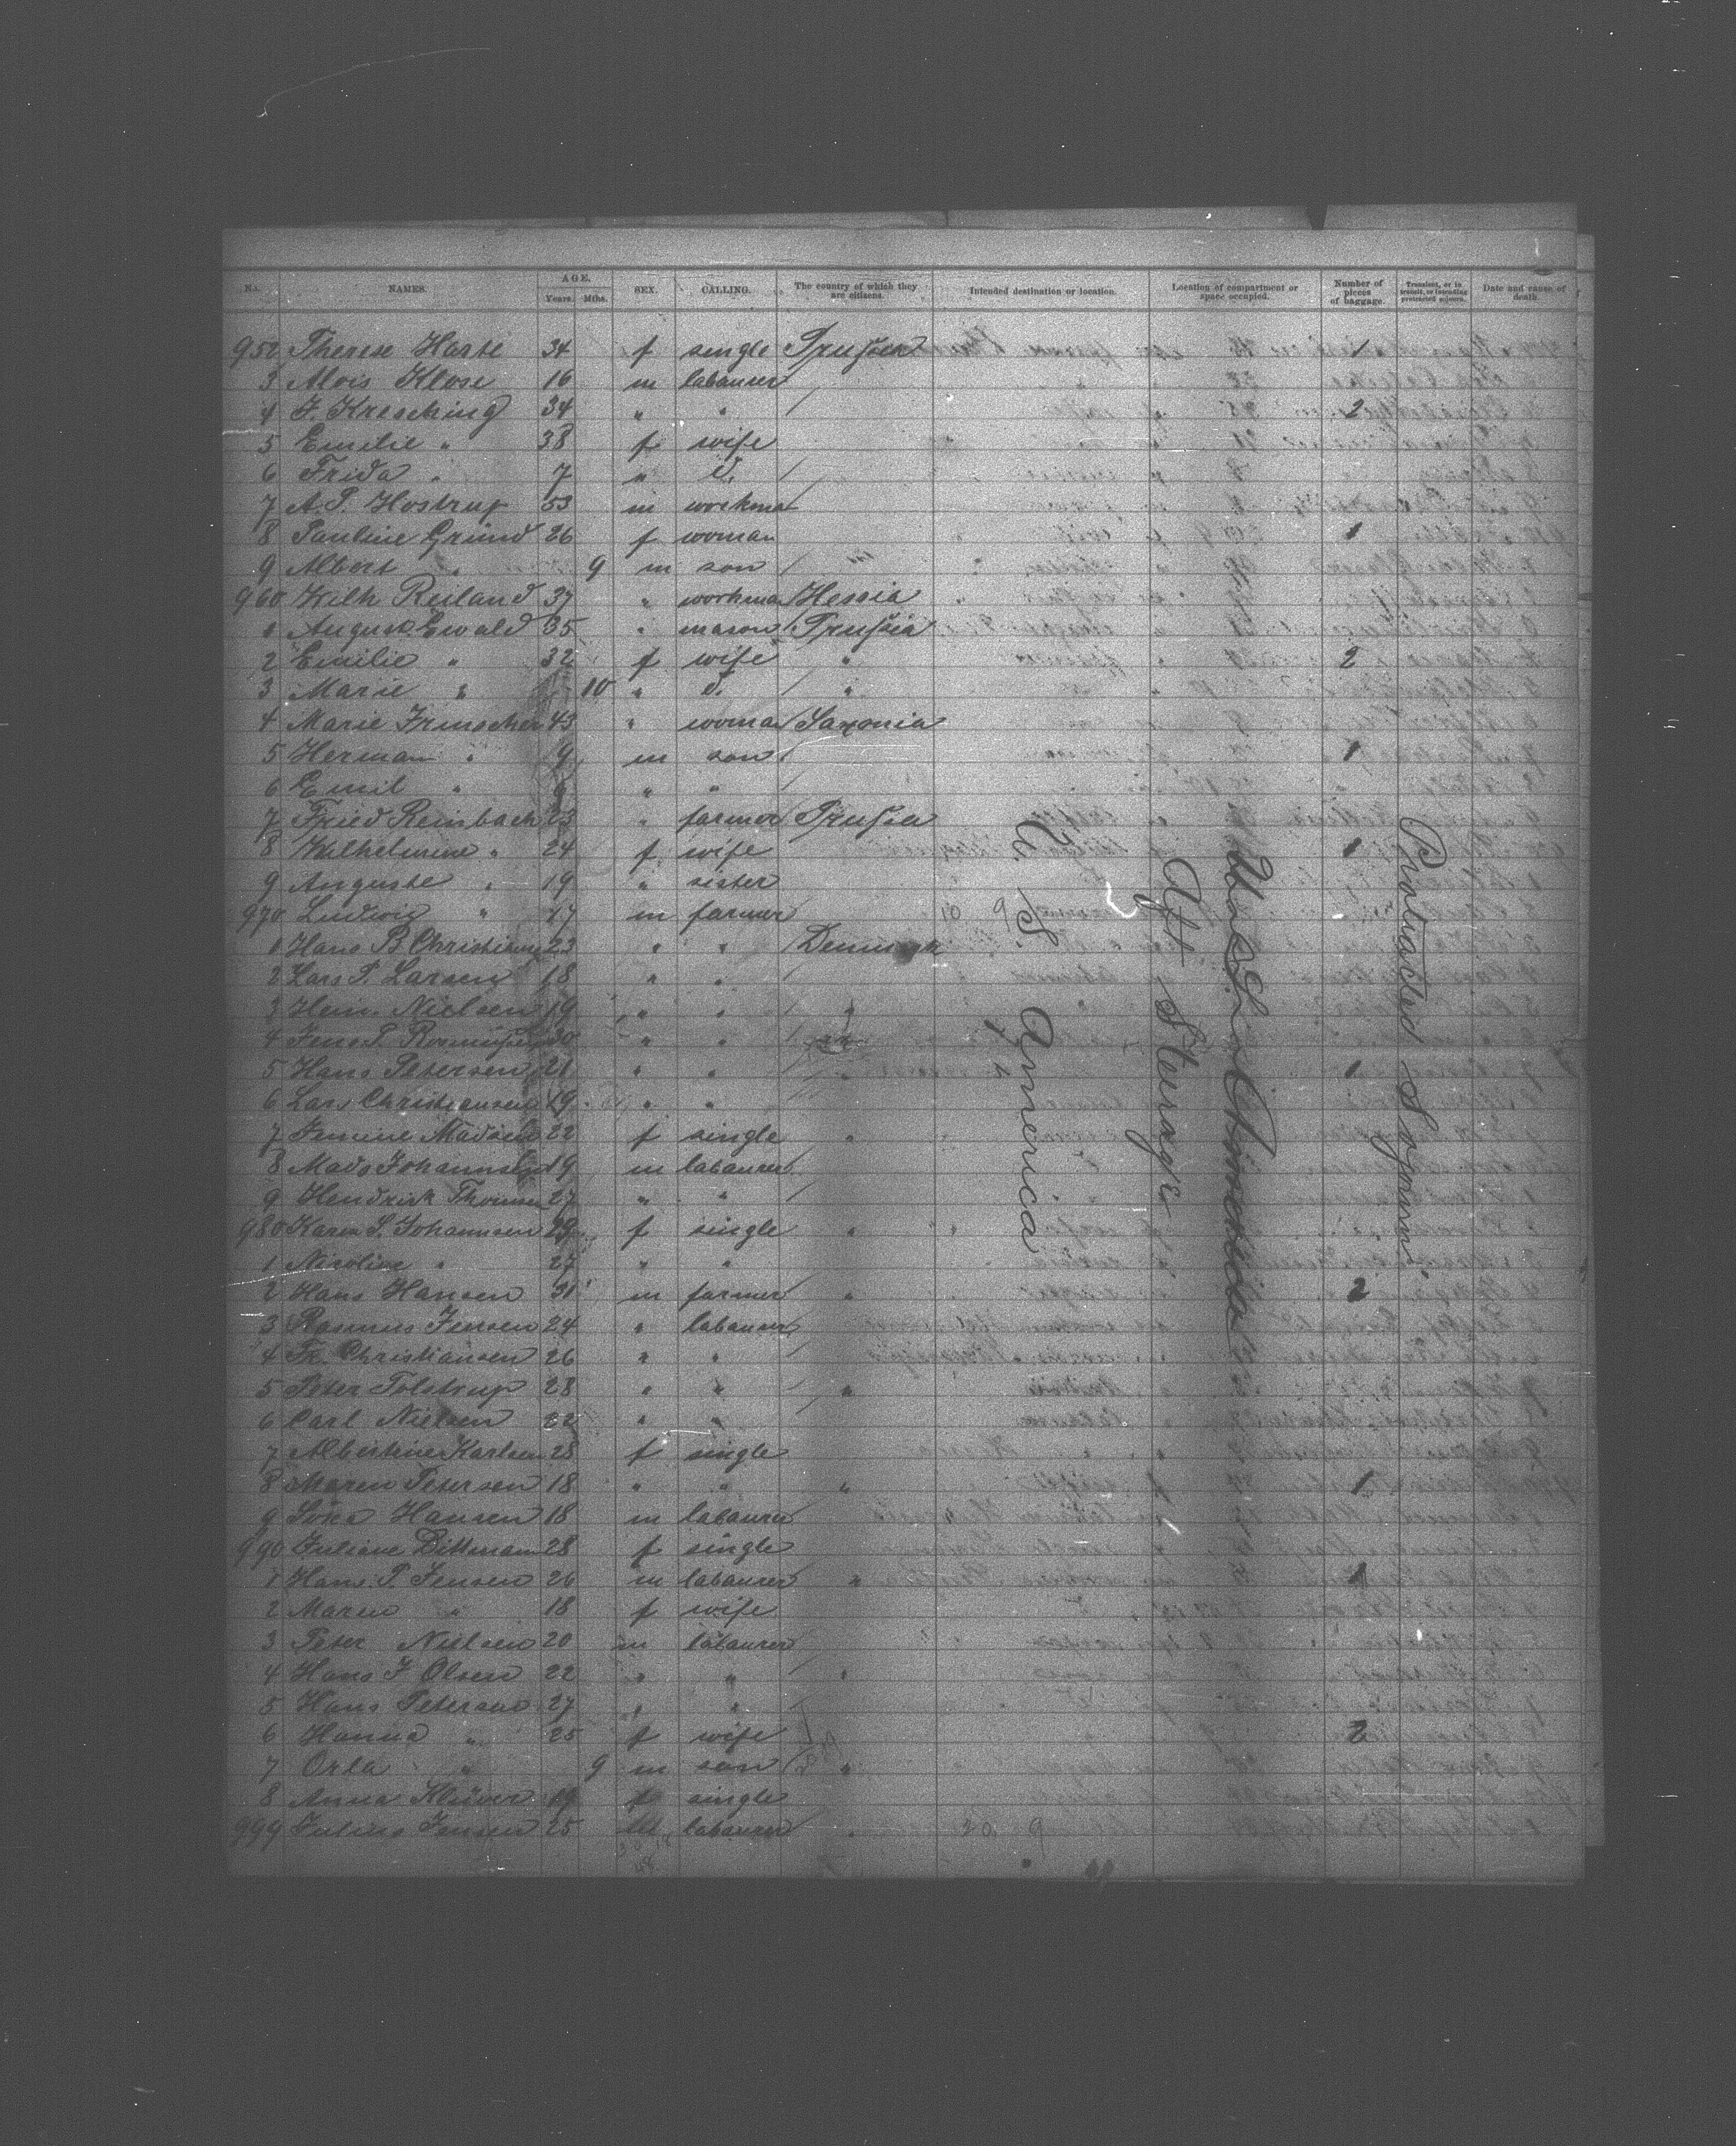 No. NAMES. AGE. Years. Mths. SEX. CALLING. The country of which they are citizens. Intended destination or location. Location of compartment or space occupied. Number of pieces of baggage. Transient, or in transit, or intending protracted sojourn. Date and cause of death.
952 Therese Harte 34 f single Prussia 1
3 Alois Klose 16 m labaurer
4 F. Kresching 34 " " 2
5 Emilie " 38 f wife
6 Frida " 7 " d.
7 A. P. Hostrup 53 m workman
8 Pauline Grund 26 f woman 1
9 Albert " 9 m son
960 Wilh Reiland 37 " workman Hessia
1 August Ewald 35 " mason Prussia
2 Emilie " 32 f wife " 2
3 Marie " 10 " d. "
4 Marie Irmscher 43 " woman Saxonia
5 Herman " 9 m son 1
6 Emil " " "
7 Fried Reinbach 23 " farmer Prussia
8 Wilhelmine " 24 f wife 1
9 Auguste " 19 " sister
970 Ludwig " 17 m farmer
1 Hans B Christiansen 23 " " Denmark
2 Lars P. Larsen 18 " "
3 Hein. Nielsen 19 " " "
4 Jens P. Rasmussen 30 " "
5 Hans Petersen 21 " " " 1
6 Lars Christiansen 19 " "
7 Jensine Madsen 22 f single "
8 Mads Johannsen 19 m labaurer
9 Hendrik Thomsen 27 " "
980 Karen S. Johannsen 29 f single "
1 Nicoline " 27 " "
2 Hans Hansen 31 m farmer " 2
3 Rasmus Jensen 24 " labaurer
4 Fr. Christiansen 26 " "
5 Peter Tolstrup 28 " " "
6 Carl Nielsen 22 " "
7 Albertine Karlsen 28 f single
8 Maren Petersen 18 " " " 1
9 Hansen 18 m labaurer
990 Juliane Dittmann 28 f single
1 Hans P. Jensen 26 m labaurer " 1
2 Maren " 18 f wife
3 Peter Nielsen 20 m labaurer
4 Hans J Olsen 22 " " "
5 Hans Petersen 27 " "
6 Hanna " 25 f wife 2
7 Orla " 9 m son "
8 Anna Klüver 19 f single
999 Julius Jensen 25 m labaurer "
U. S. America
Aft Steerage
Protracted Sojourn